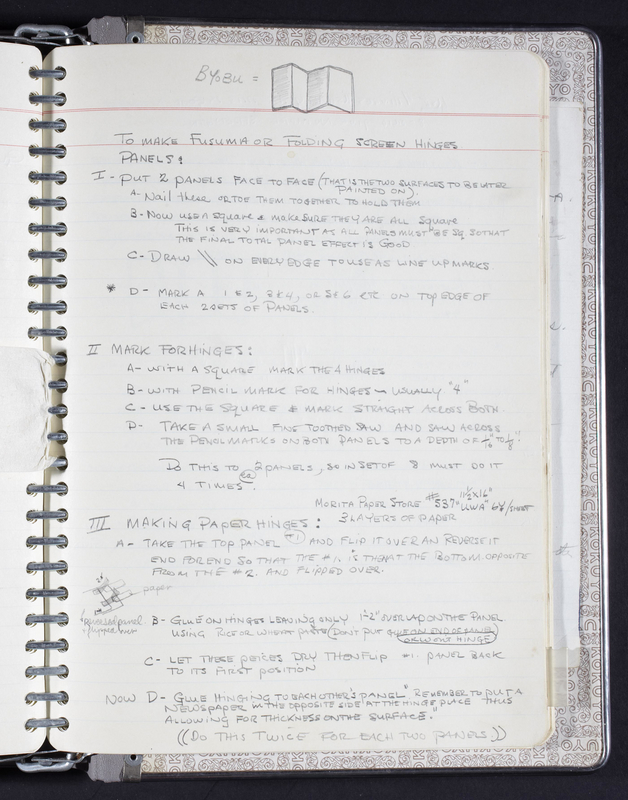 BYOBU =
TO MAKE FUSUMA OR FOLDING SCREEN HINGES
PANELS:
I - PUT 2 PANELS FACE TO FACE (THAT IS THE TWO SURFACES TO BE LATER
PAINTED ON).
A. Nail these OR TOE THEM TOGETHER TO HOLD THEM
B- NOW USE A SQUARE & MAKE SURE THEY ARE ALL SQUARE
THIS IS VERY IMPORTANT AS ALL PANELS MUST BE SQ. SO THAT
THE FINAL TOTAL PANEL EFFECT IS GOOD
C- DRAW \\ ON EVERY EDGE TO USE AS LINE UP MARKS
* D- MARK A 1 & 2, 3 & 4, OR 5 & 6 ETC ON TOP EDGE OF
EACH 2 SETS OF PANELS.
II MARK FOR HINGES:
A- WITH A SQUARE MARK THE 4 HINGES
B- WITH PENCIL MARK FOR HINGES - USUALLY "4"
C- USE THE SQUARE & MARK STRAIGHT ACROSS BOTH
D- TAKE A SMALL FINE TOOTHED SAW AND SAW ACROSS
THE PENCIL MARKS ON BOTH PANELS TO A DEPTH OF 1/16" TO 1/8".
DO THIS TO ea 2 PANELS, SO IN SET OF 8 MUST DO IT
4 TIMES.
MORITA PAPER STORE #537 "UWA" 11½ X 16" 6¢/SHEET
III MAKING PAPER HINGES: 3 LAYERS OF PAPER
A- TAKE THE TOP PANEL #1 AND FLIP IT OVER AN REVERSE IT
END FOR END SO THAT THE #1. IS THEN AT THE BOTTOM. OPPOSITE
FROM THE #2. AND FLIPPED OVER.
paper
reversed panel
flipped over
B- GLUE ON HINGES LEAVING ONLY 1-2" OVERLAP ON THE PANEL
USING RICE OR WHEAT PASTE (DON'T PUT GLUE ON END OF PAPER
OR WON'T HINGE)
C- LET THESE PEICES DRY THEN FLIP #1. PANEL BACK
TO ITS FIRST POSITION
NOW D- GLUE HINGING TO EACH OTHER'S PANEL "REMEMBER TO PUT A
NEWSPAPER IN THE OPPOSITE SIDE AT THE HINGE PLACE THUS
ALLOWING FOR THICKNESS ON THE SURFACE."
((DO THIS TWICE FOR EACH TWO PANELS))